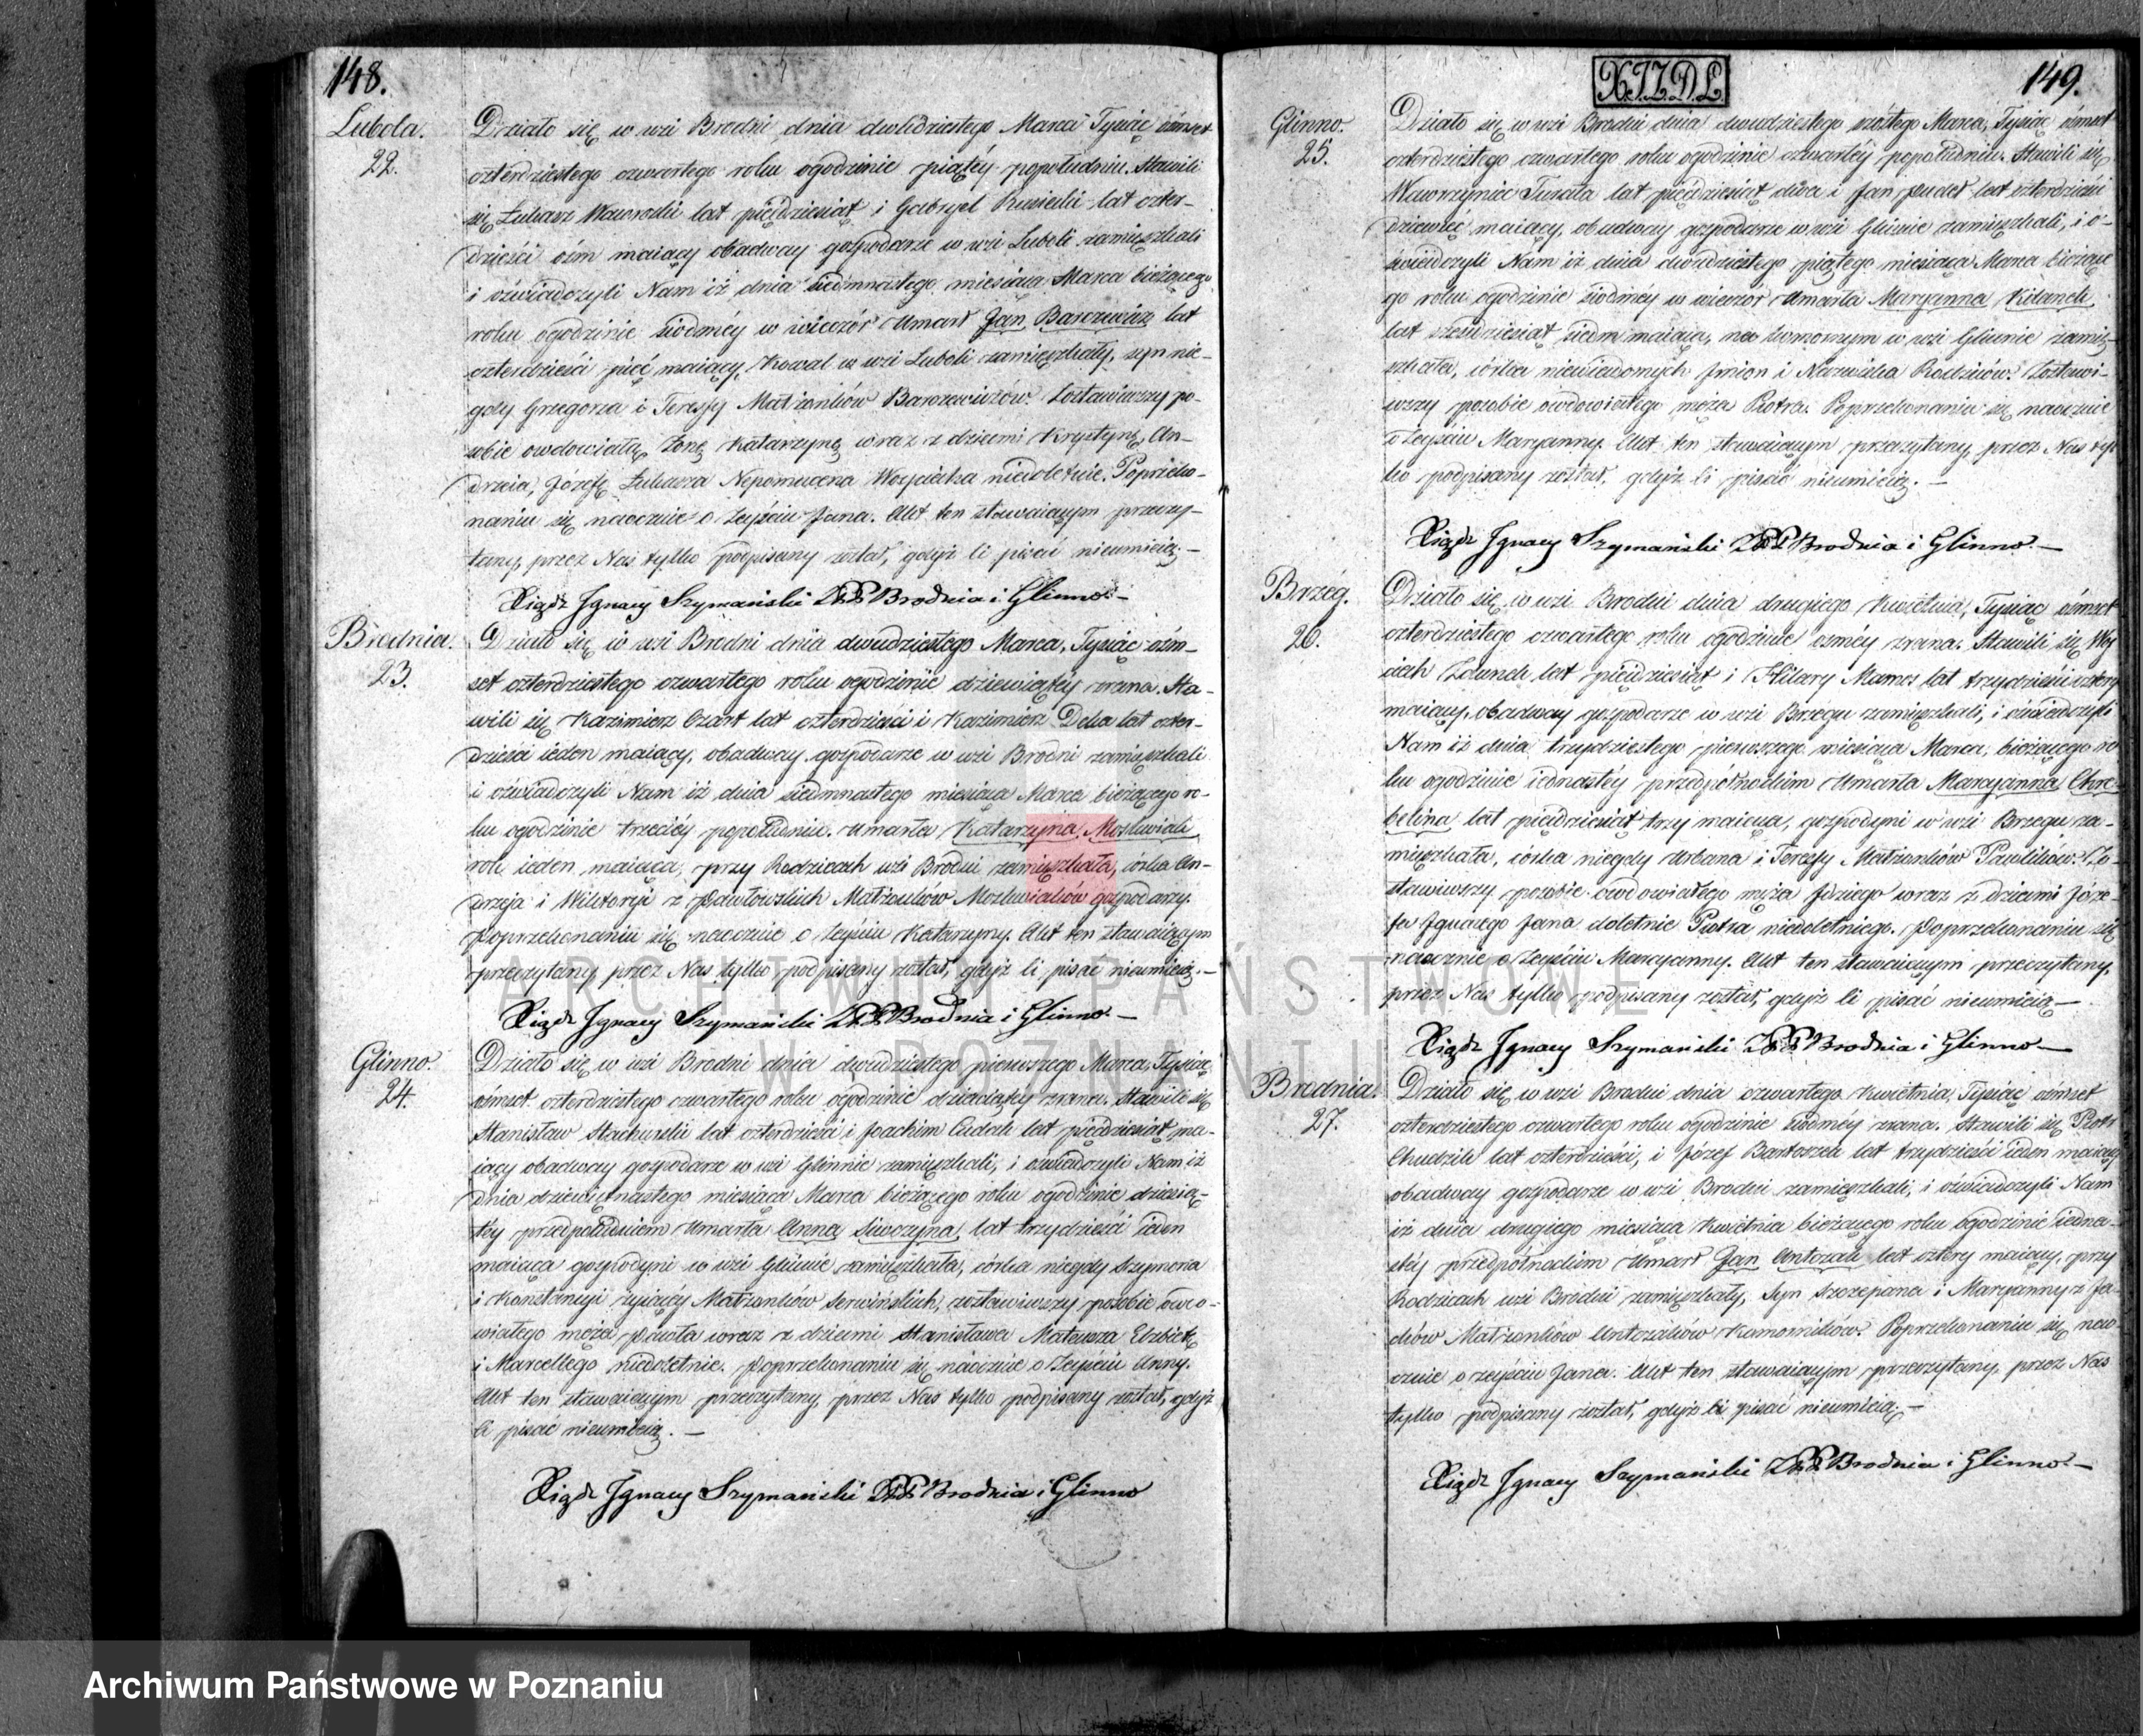 148.
Lubola.
22.
Działo się w wsi Brodni dnia dwudziestego Marca Tysiąc ośmset
czterdziestego czwartego roku ogodzinie piątéy popołudniu. Stawili
się Łukasz Nawrocki lat pięćdziesiąt i Gabryel Kusicki lat czter-
dzieści ośm maiący obadway gospodarze w wsi Luboli zamięszkali
i oświadczyli Nam iż dnia siedmnastego miesiąca Marca bieżącego
roku ogodzinie siodméy w wieczór umarł Jan Barczewicz lat
czterdzieści pięć maiący, Kowal w wsi Luboli zamięszkały, syn nie-
gdy Grzegorza i Teressy Małżonków Barczewiczów. Zostawiwszy po-
sobie owdowiałą Żonę Katarzynę wraz z dziećmi Krystynę, An-
drzeia, Józefę Łukasza Nepomucena Woyciecha niedoletnie. Poprzeko-
naniu się naocznie o Zeyściu Jana. Akt ten stawaiącym przeczy-
tany, przez Nas tylko podpisany został, gdyż ci pisać nieumieią. —
Xiądz Ignacy Szymański Brodnia i Glinno. —
Brodnia.
23.
Działo się w wsi Brodni dnia dwudziestego Marca, Tysiąc ośm-
set czterdziestego czwartego roku ogodzinie dziewiątéy zrana. Sta-
wili się Kazimierz Czart lat czterdzieści i Kazimierz Deka lat czter-
dzieści ieden maiący, obadway gospodarze w wsi Brodni zamięszkali
i oświadczyli Nam iż dnia siedmnastego miesiąca Marca bieżącego ro-
ku ogodzinie trzeciéy popołudniu umarła Katarzyna Moskwiak
rok ieden maiąca, przy Rodzicach wsi Brodni zamięszkała, córka An-
drzeja i Wiktoryi z Pawłowskich Małżonków Moskwiaków gospodarzy.
Poprzekonaniu się naocznie o Zeyściu Katarzyny. Akt ten stawaiącym
przeczytany, przez Nas tylko podpisany został, gdyż ci pisać nieumieią. —
Xiądz Ignacy Szymański Brodnia i Glinno. —
Glinno.
24.
Działo się w wsi Brodni dnia dwudziestego pierwszego Marca, Tysiąc
ośmset czterdziestego czwartego roku ogodzinie dziewiątéy zrana. Stawili się
Stanisław Stachurski lat czterdzieści i Joachim Cudak lat pięćdziesiąt ma-
iący obadway gospodarze w wsi Glinnie zamięszkali, i oświadczyli Nam iż
dnia dziewiętnastego miesiąca Marca bieżącego roku ogodzinie dziesią-
téy przedpołudniem umarła Anna Siwczyna, lat trzydzieści ieden
maiąca gospodyni w wsi Glinnie zamięszkała, córka niegdy Szymona
i Konstancyi żyiącéy Małżonków Serwińskich, zostawiwszy posobie owdo-
wiałego męża Pawła wraz z dziećmi Stanisława Mateusza Elżbietę
i Marcellego niedoletnie. Poprzekonaniu się naocznie o Zeyściu Anny.
Akt ten stawaiącym przeczytany, przez Nas tylko podpisany został, gdyż
ci pisać nieumieią. —
Xiądz Ignacy Szymański Brodnia i Glinno
X.I.Z.D.L.
149.
Glinno.
25.
Działo się w wsi Brodni dnia dwudziestego szóstego Marca, Tysiąc ośmset
czterdziestego czwartego roku ogodzinie czwartéy popołudniu. Stawili się
Wawrzyniec Turała lat pięćdziesiąt dwa i Jan lat czterdzieści
dziewięć maiący, obadway gospodarze w wsi Glinnie zamięszkali, i o-
świadczyli Nam iż dnia dwudziestego piątego miesiąca Marca bieżące-
go roku ogodzinie siodméy w wieczór umarła Maryanna Kilanek,
lat sześćdziesiąt siedm maiąca, na komornym w wsi Glinnie zamię-
szkała, córka niewiadomych Imion i Nazwiska Rodziców. Zostawi-
wszy posobie owdowiałego męża Piotra. Poprzekonaniu się naocznie
o Zeyściu Maryanny. Akt ten stawaiącym przeczytany, przez Nas tyl-
ko podpisany został, gdyż ci pisać nieumieią. —
Xiądz Ignacy Szymański Brodnia i Glinno. —
Brzég.
26.
Działo się w wsi Brodni dnia drugiego Kwietnia, Tysiąc ośmset
czterdziestego czwartego roku ogodzinie ósméy zrana. Stawili się Woy-
ciech lat pięćdziesiąt i Hilary Mames lat trzydzieści cztery
maiący, obadway gospodarze w wsi Brzegu zamięszkali, i oświadczyli
Nam iż dnia trzydziestego pierwszego miesiąca Marca, bieżącego ro-
ku ogodzinie iednastéy przedpółnockiem umarła Maryanna Chrę-
belina lat pięćdziesiąt trzy maiąca, gospodyni w wsi Brzegu za-
mięszkała, córka niegdy Urbana i Terezy Małżonków Pawlików. Zo-
stawiwszy posobie owdowiałego męża Idziego wraz z dziećmi Józe-
fa Ignacego Jana doletnie Piotra niedoletniego. Poprzekonaniu się
naocznie o Zeyściu Maryanny. Akt ten stawaiącym przeczytany,
przez Nas tylko podpisany został, gdyż ci pisać nieumieią —
Xiądz Ignacy Szymański Brodnia i Glinno —
Brodnia.
27.
Działo się w wsi Brodni dnia czwartego Kwietnia, Tysiąc ośmset
czterdziestego czwartego roku ogodzinie siódméy zrana. Stawili się Piotr
Chudzik lat czterdzieści, i Józef Bartoszek lat trzydzieści ieden maiący
obadway gospodarze w wsi Brodni zamięszkali, i oświadczyli Nam
iż dnia drugiego miesiąca Kwietnia bieżącego roku ogodzinie iedna-
stéy przedpółnockiem umarł Jan Antczak lat cztery maiący, przy
Rodzicach wsi Brodni zamięszkały, Syn Szczepana i Maryanny z Ja-
ków Małżonków Antczaków Komorników. Poprzekonaniu się nao-
cznie o zeyściu Jana. Akt ten stawaiącym przeczytany, przez Nas
tylko podpisany został, gdyż ci pisać nieumieią. —
Xiądz Ignacy Szymański Brodnia i Glinno —
ARCHIWUM PAŃSTWOWE
W POZNANIU
Archiwum Państwowe w Poznaniu